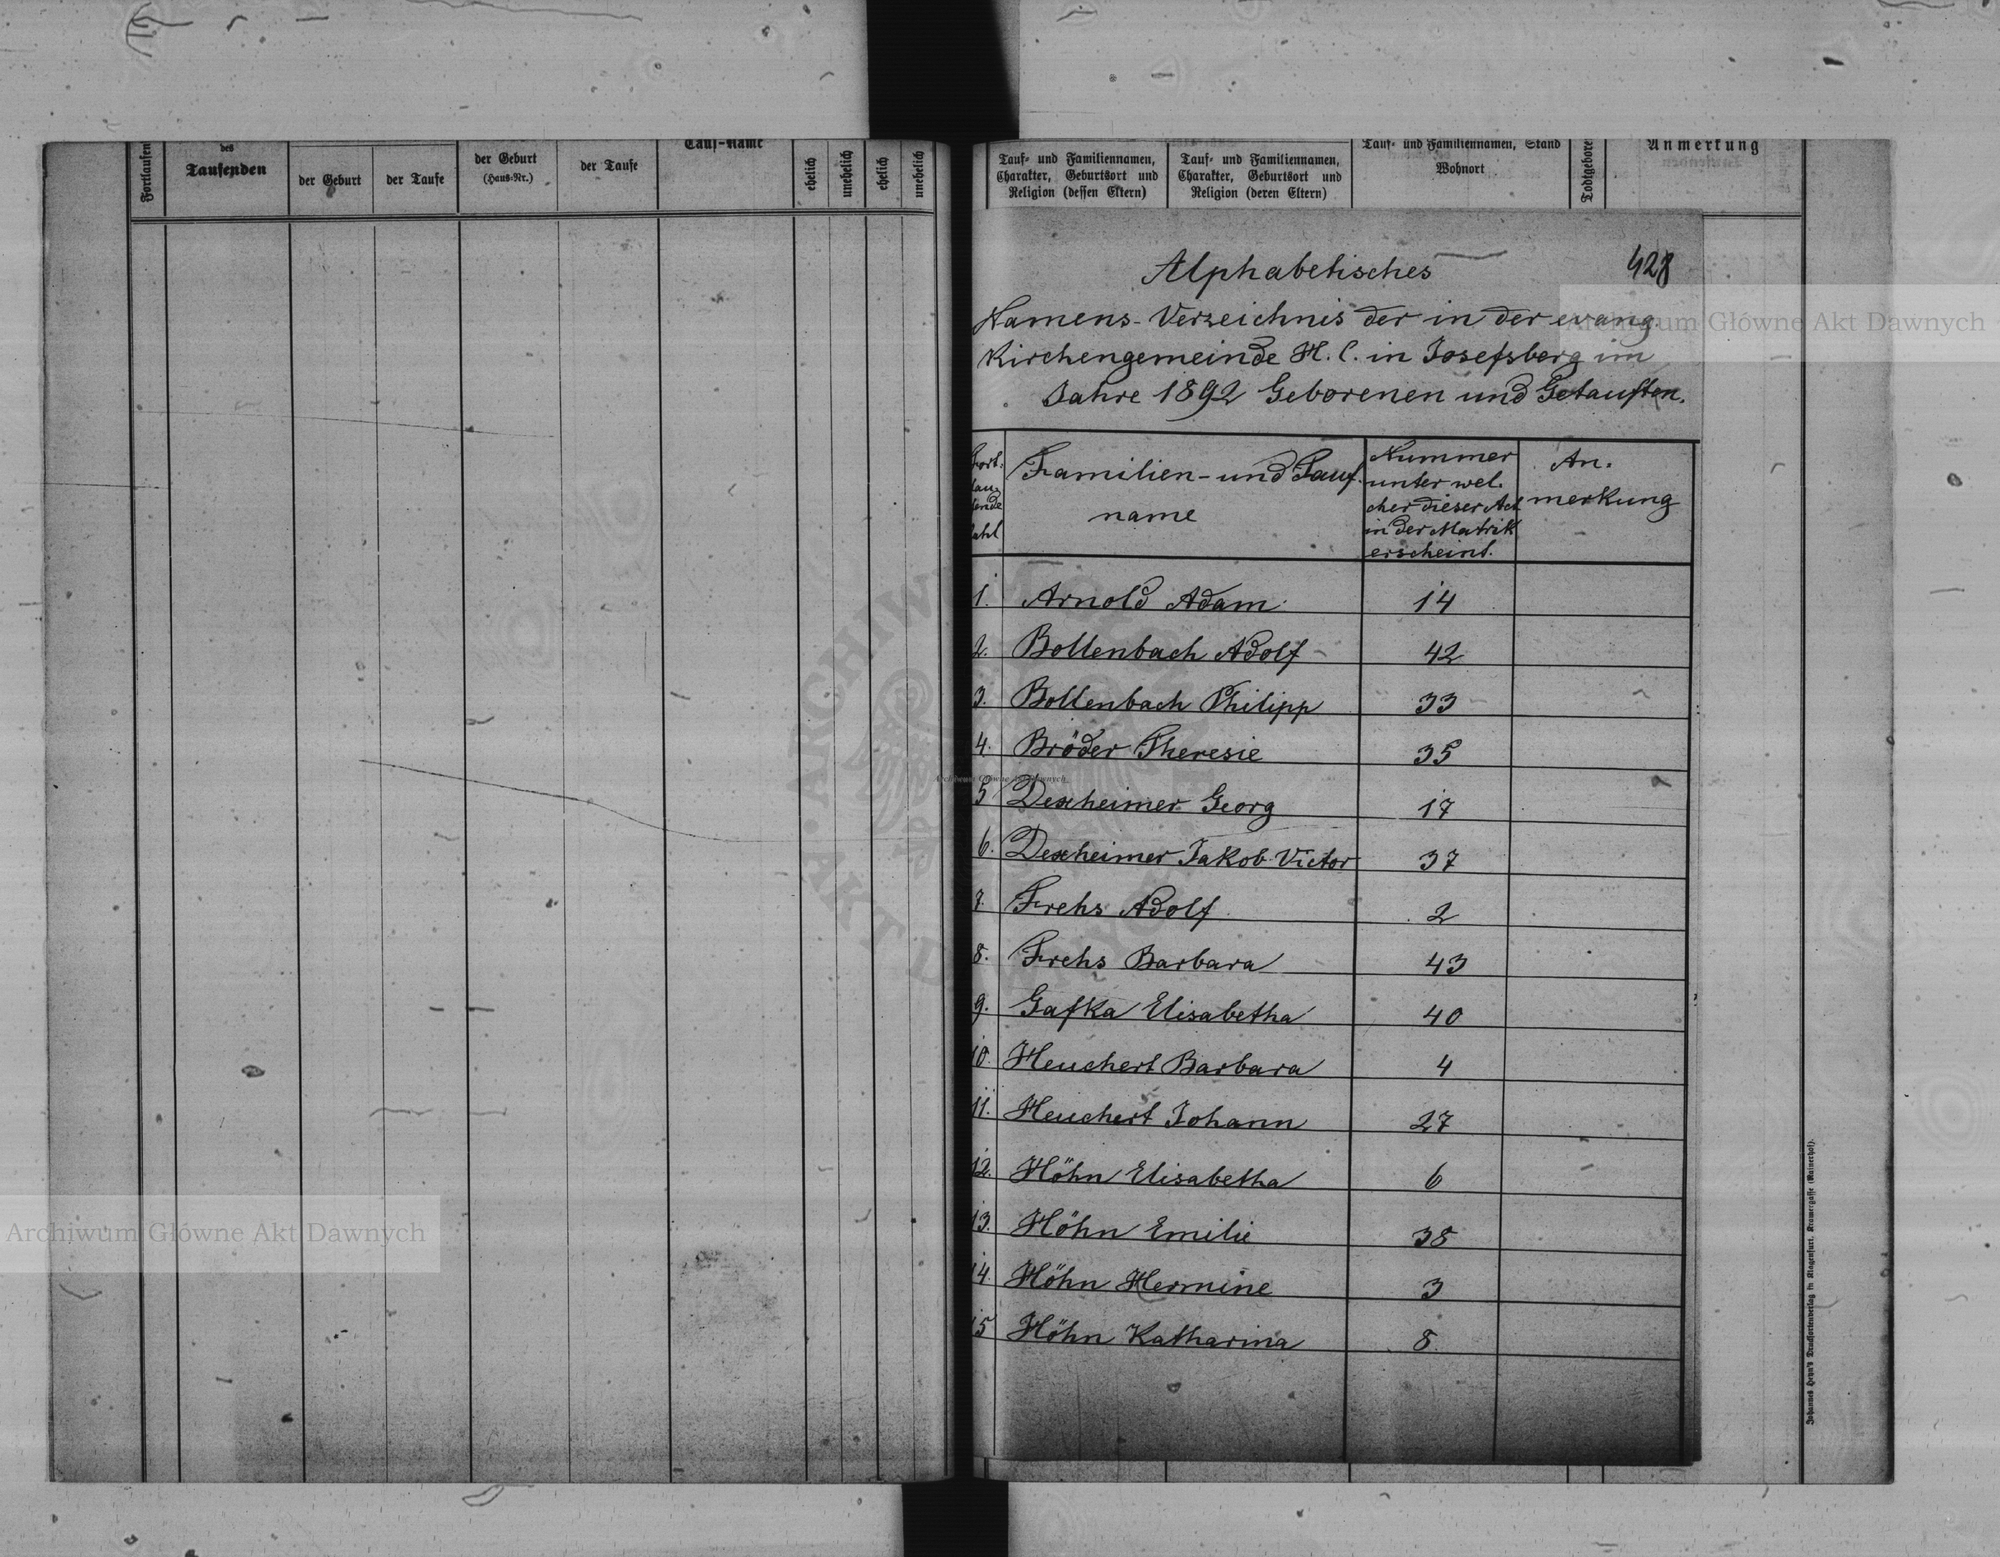 Fortlaufen
des
Taufenden
der Geburt
der Taufe
der Geburt
(Haus-Nr.)
der Taufe
Tauf-Name
ehelich
unehelich
ehelich
unehelich
Tauf- und Familiennamen,
Charakter, Geburtsort und
Religion (dessen Eltern)
Tauf- und Familiennamen,
Charakter, Geburtsort und
Religion (deren Eltern)
Tauf- und Familiennamen, Stand
Wohnort
Todtgebore
Anmerkung
428
Alphabetisches
Namens-Verzeichnis der in der evang.
Kirchengemeinde H. C. in Josefsberg im
Jahre 1892 Geborenen und Getauften.
Fort-
lau-
fende
Zahl
Familien- und Tauf-
name
Nummer
unter wel-
cher dieser Act
in der Matrik
erscheint.
An-
merkung
1. Arnold Adam 14
2. Bollenbach Adolf 42
3. Bollenbach Philipp 33
4. Bröder Theresie 35
5 Dexheimer Georg 17
6. Dexheimer Jakob Victor 37
7. Frehs Adolf 2
8. Frehs Barbara 43
9. Gafka Elisabetha 40
10. Heuchert Barbara 4
11. Heuchert Johann 27
12. Höhn Elisabetha 6
13. Höhn Emilie 38
14. Höhn Hermine 3
15 Höhn Katharina 8
Johannes Heyn's Drucksortenverlag in Klagenfurt, Kramergasse (Rainerhof).
Archiwum Główne Akt Dawnych
Archiwum Główne Akt Dawnych
Archiwum Główne Akt Dawnych